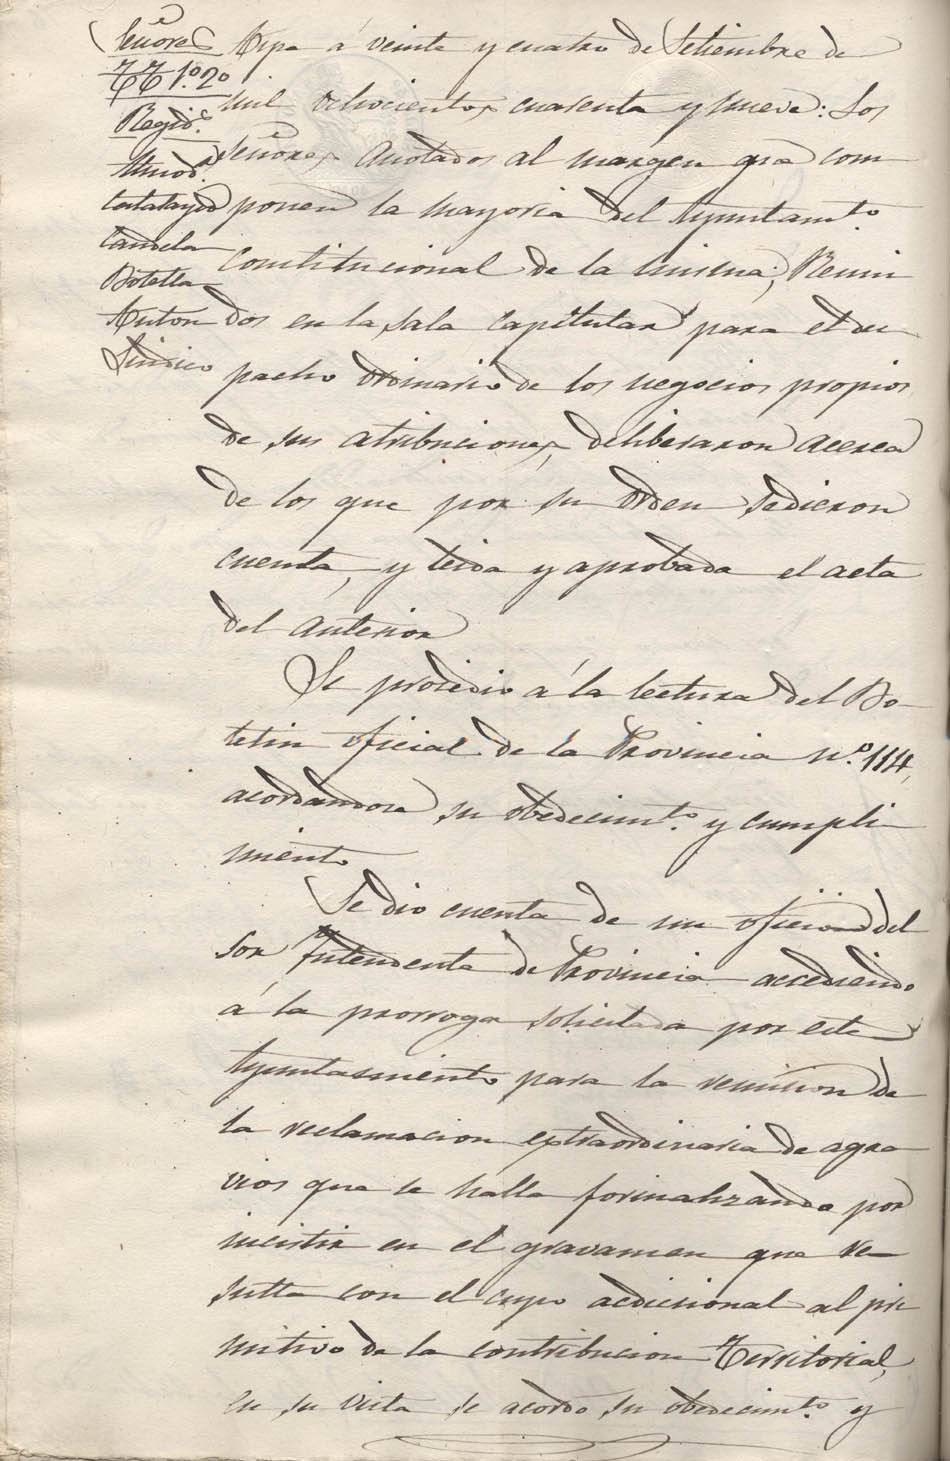 Señores
TT 1º 2º
Regid.s
Calatayud
Candela
Botella
Anton
Sindico
á veinte y cuatro de Setiembre de
mil ochocientos cuarenta y nueve: Los
Señores Anotados al margen que com
ponen la mayoria del Ayuntam.to
Constitucional de la misma, Reuni
dos en la Sala Capitular para el des
pacho ordinario de los negocios propios
de sus atribuciones, deliberaron acerca
de los que por su orden se dieron
cuenta, y leida y aprobada el acta
del Anterior
Se procedio á la lectura del Bo-
letin oficial de la Provincia nº. 114,
acordandose su obedecim.to y cumpli
miento
Se dio cuenta de un oficio del
Sor Intendente de Provincia accediendo
á la prorroga solicitada por este
Ayuntamiento para la remision de
la reclamacion extraordinaria de agra
vios que se halla formalizando por
insistir en el gravamen que re-
sulta con el cupo adicional al pri
mitivo de la contribucion Territorial,
en su vista se acordó su obedecim.to y